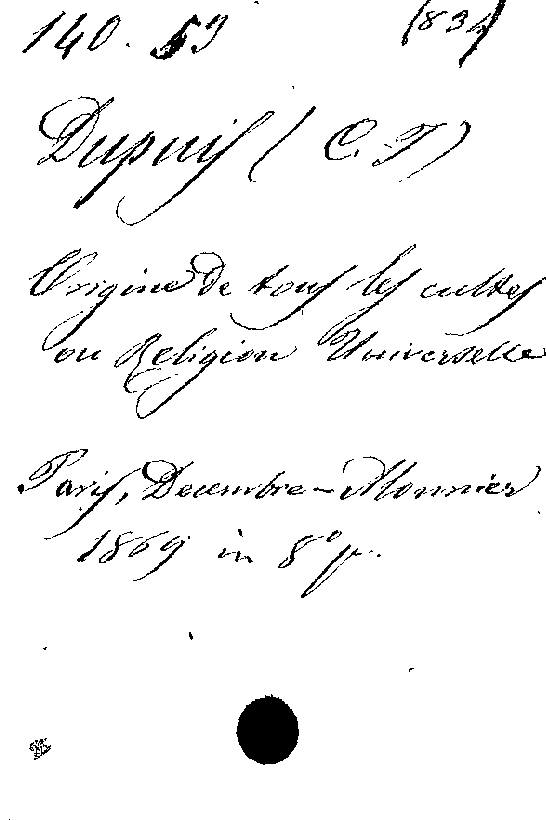 140. 53 (834)
Dupuis (C. F)
Origine de tous les cultes
ou Religion Universelle
Paris, Decembre-Alonnier
1869 in 8° p.